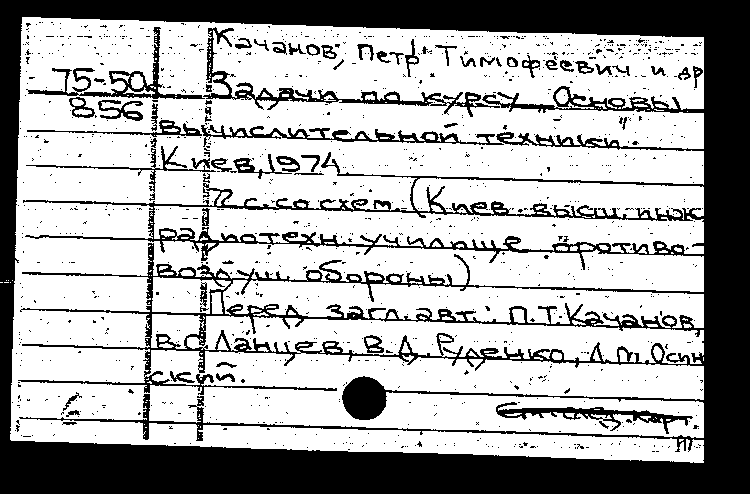 Качанов, Петр Тимофеевич и др
75-50
856
Задачи по курсу „Основы
вычислительной техники".
Киев, 1974
72 с. со схем. (Киев. высш. инж
радиотехн. училище противо-
воздуш. обороны)
Перед загл. авт.: П.Т. Качанов,
В.С. Ланцев, В.Д. Руденко, Л.М. Осин
ский.
См. след. карт.